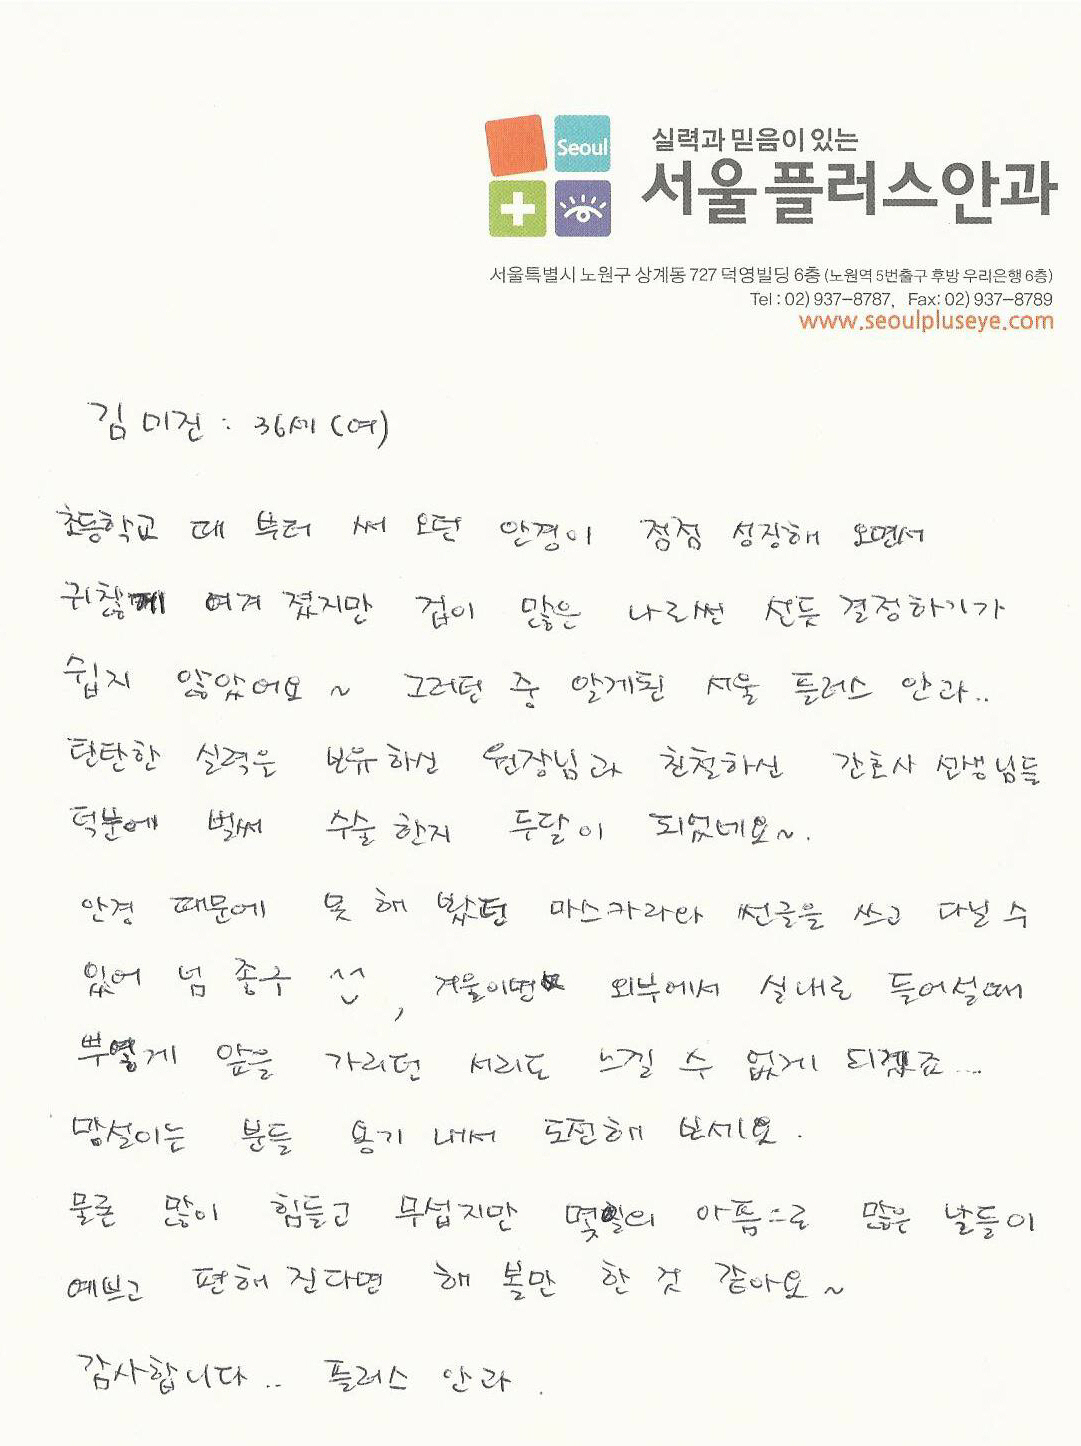 Seoul
실력과 믿음이 있는
서울플러스안과
서울특별시 노원구 상계동 727 덕영빌딩 6층 (노원역 5번출구 후방 우리은행 6층)
Tel : 02) 937-8787, Fax: 02) 937-8789
www.seoulpluseye.com
김미진 : 36세 (여)
초등학교 때 부터 써 오던 안경이 점점 성장해 오면서
귀찮게 여겨 졌지만 겁이 많은 나로썬 선듯 결정하기가
쉽지 않았어요~ 그러던 중 알게된 서울 플러스 안과..
탄탄한 실력은 보유하신 원장님과 친철하신 간호사 선생님들
덕분에 벌써 수술한지 두달이 되었네요~.
안경 때문에 못 해 봤던 마스카라와 썬글을 쓰고 다닐 수
있어 넘 좋구 ^^ , 겨울이면 외부에서 실내로 들어설때
뿌옇게 앞을 가리던 서리도 느낄 수 없게 되겠죠...
망설이는 분들 용기 내서 도전해 보세요.
물론 많이 힘들고 무섭지만 몇일의 아픔으로 많은 날들이
예쁘고 편해 진다면 해 볼만 한 것 같아요~
감사합니다.. 플러스 안과.